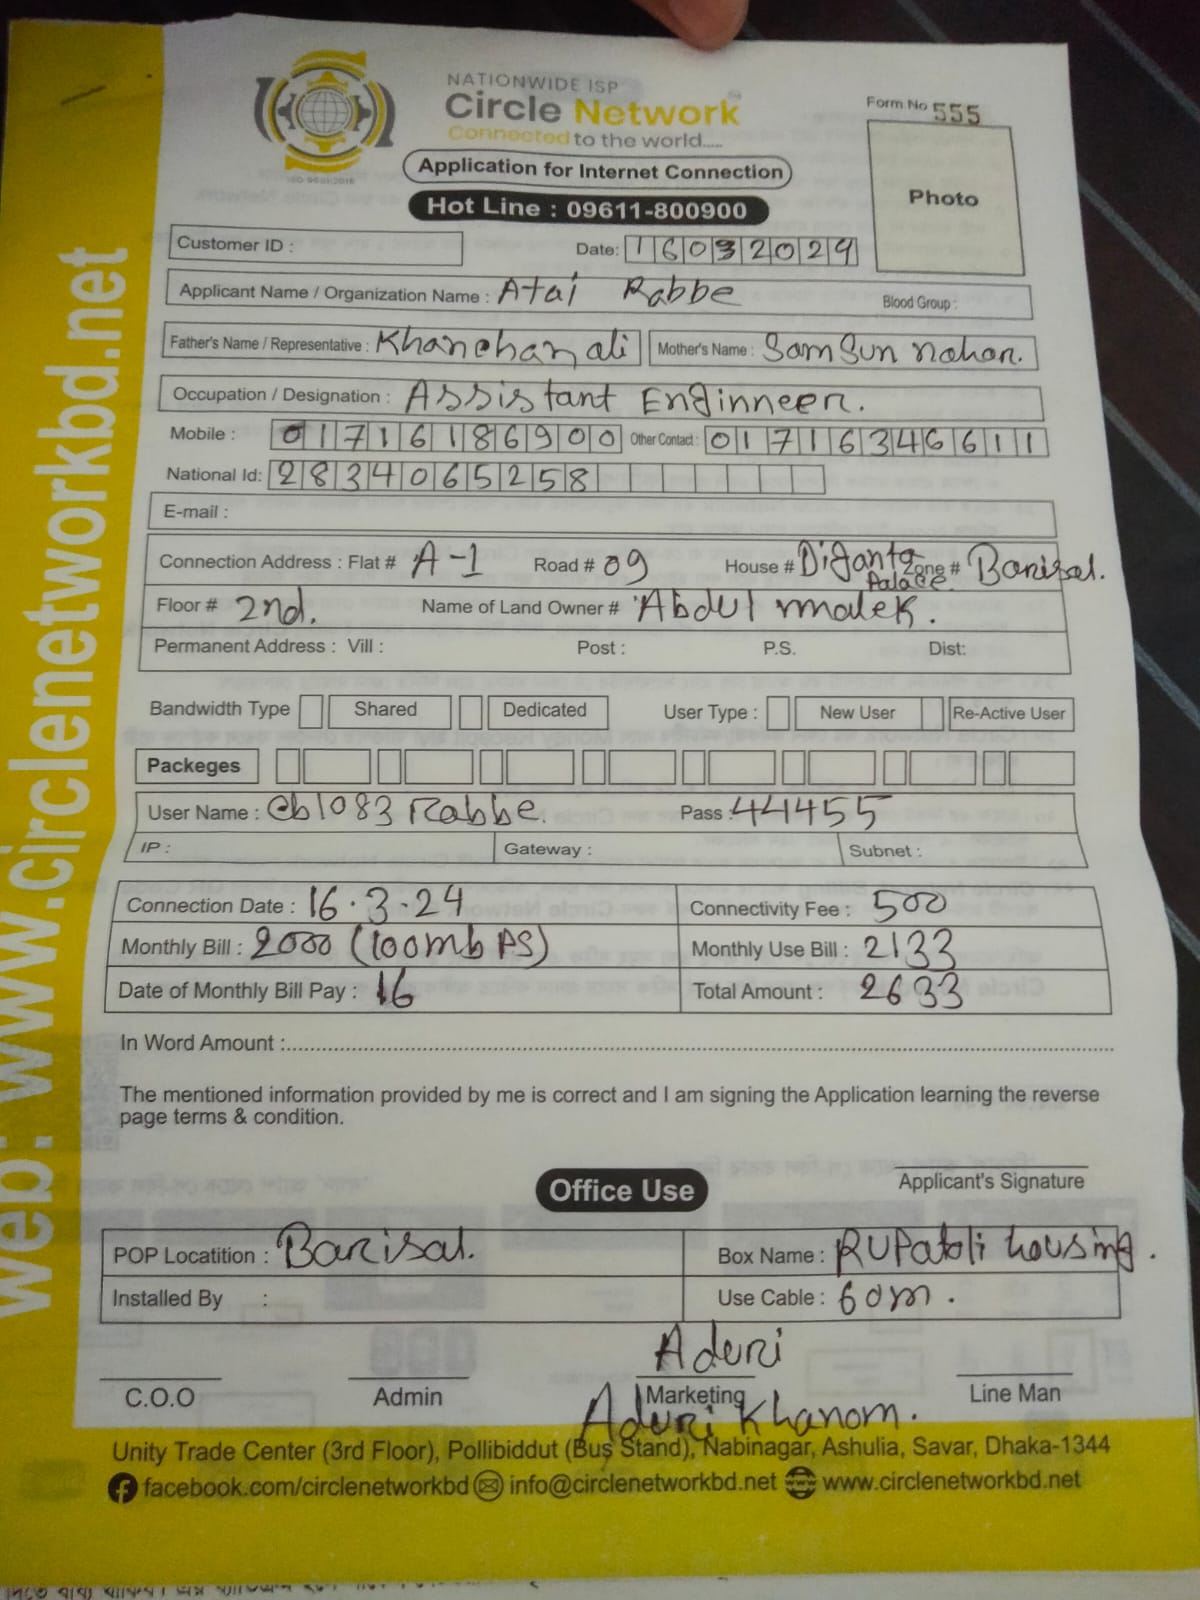 NATIONWIDE ISP
Circle Network
Connected to the world.....
ISO 9001:2015
Application for Internet Connection
Hot Line : 09611-800900
Form No 555
Photo
Customer ID :
Date: 16032024
Applicant Name / Organization Name : Atai Rabbe Blood Group :
Father's Name / Representative : Khanchan ali Mother's Name : Samsun nahar.
Occupation / Designation : Assistant Enginneer.
Mobile : 01716186900 Other Contact : 01716346611
National Id: 2834065258
E-mail :
Connection Address : Flat # A-1 Road # 09 House # Diganta Palace Zone # Barisal.
Floor # 2nd. Name of Land Owner # Abdul malek.
Permanent Address : Vill : Post : P.S. Dist:
Bandwidth Type Shared Dedicated User Type : New User Re-Active User
Packeges
User Name : cb1083 rabbe. Pass : 44455
IP : Gateway : Subnet :
Connection Date : 16.3.24 Connectivity Fee : 500
Monthly Bill : 2000 (100mbPS) Monthly Use Bill : 2133
Date of Monthly Bill Pay : 16 Total Amount : 2633
In Word Amount :
The mentioned information provided by me is correct and I am signing the Application learning the reverse
page terms & condition.
Applicant's Signature
Office Use
POP Locatition : Barisal. Box Name : RUPatoli housing.
Installed By : Use Cable : 60m.
Aduri
C.O.O Admin Marketing Line Man
Aduri Khanom.
Unity Trade Center (3rd Floor), Pollibiddut (Bus Stand), Nabinagar, Ashulia, Savar, Dhaka-1344
facebook.com/circlenetworkbd info@circlenetworkbd.net www.circlenetworkbd.net
web: www.circlenetworkbd.net